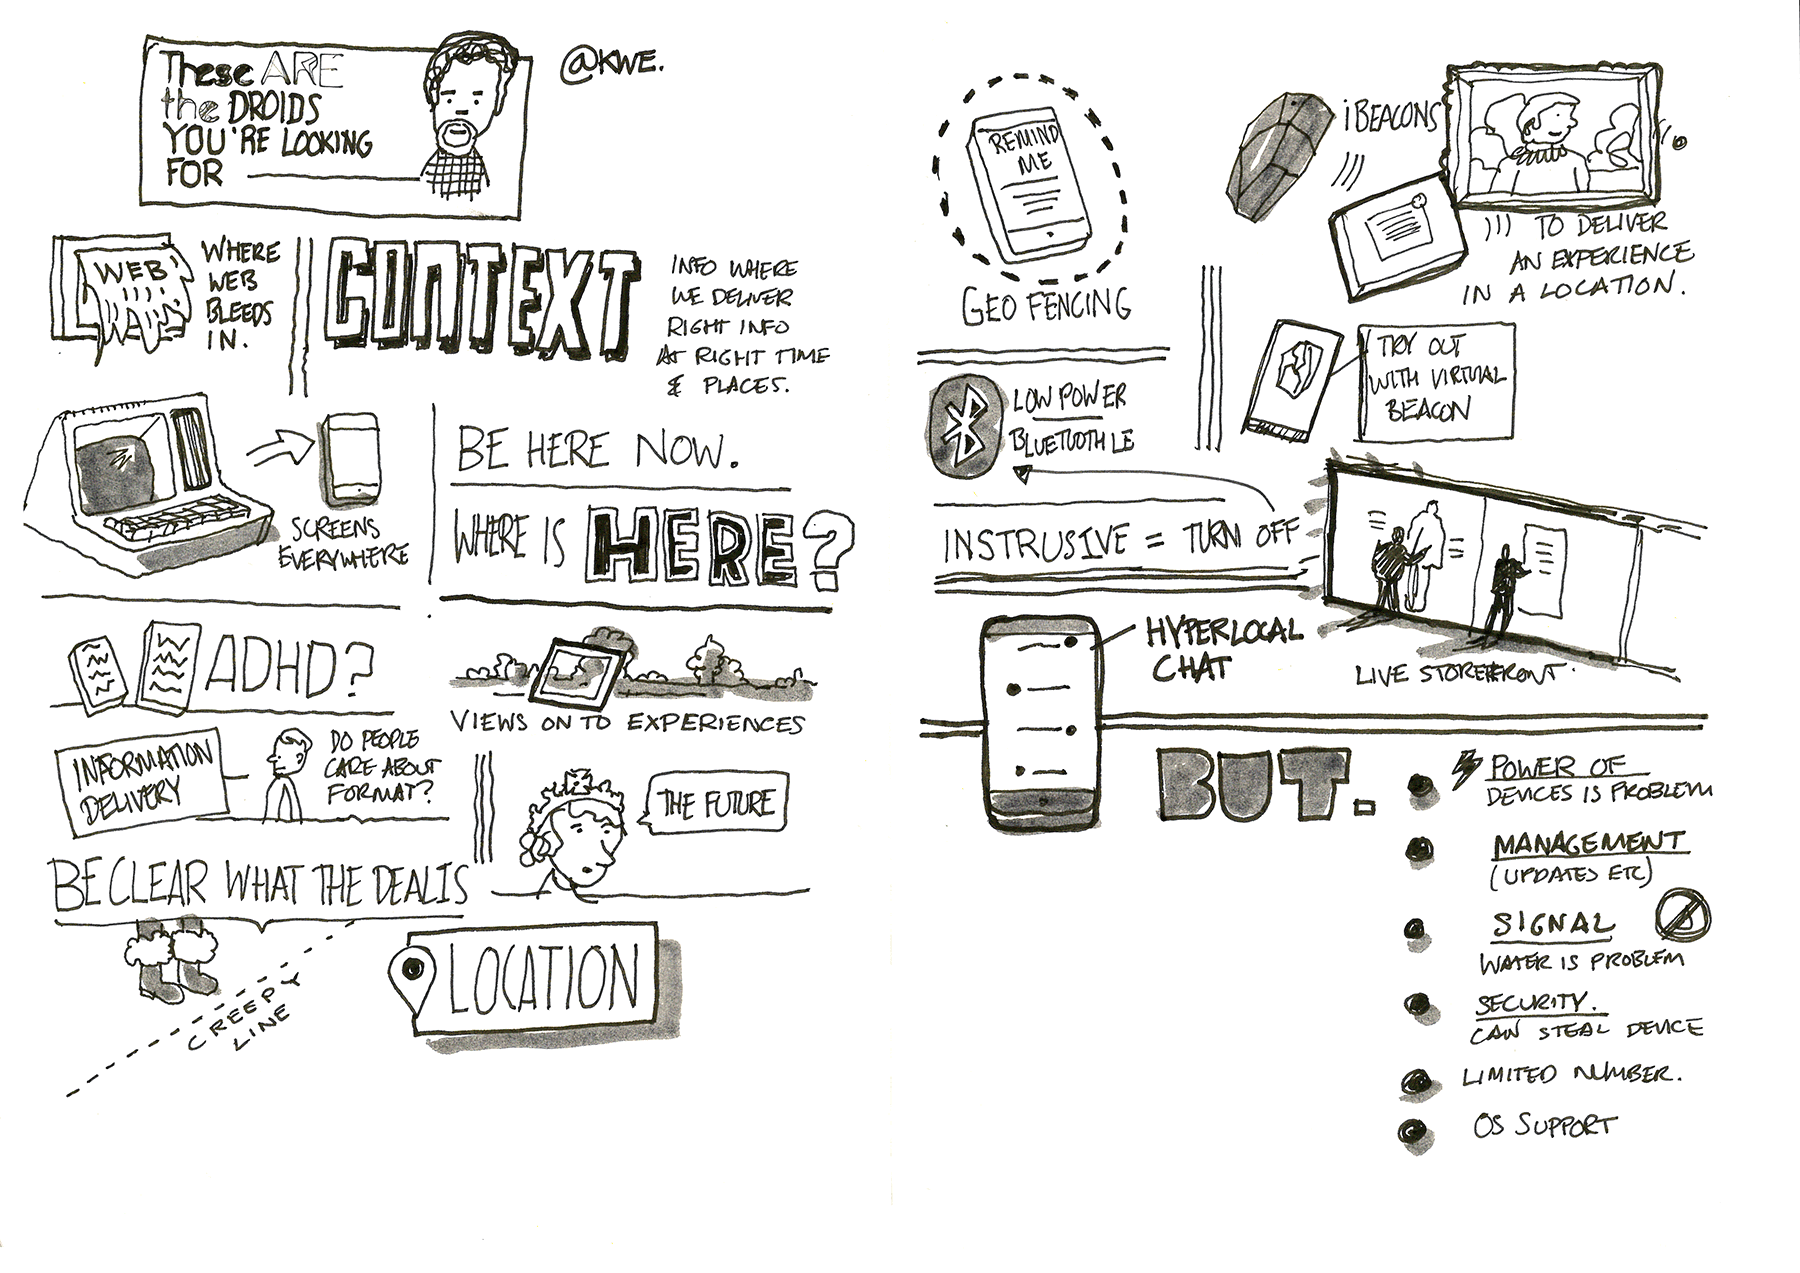 These ARE
the DROIDS
YOU'RE LOOKING
FOR
@KWE.
WEB
WHERE
WEB
BLEEDS
IN.
CONTEXT
INFO WHERE
WE DELIVER
RIGHT INFO
AT RIGHT TIME
& PLACES.
SCREENS
EVERYWHERE
BE HERE NOW.
WHERE IS HERE?
ADHD?
VIEWS ON TO EXPERIENCES
INFORMATION
DELIVERY
DO PEOPLE
CARE ABOUT
FORMAT?
THE FUTURE
BE CLEAR WHAT THE DEAL IS
CREEPY
LINE
LOCATION
REMIND
ME
GEO FENCING
iBEACONS
))) TO DELIVER
AN EXPERIENCE
IN A LOCATION.
TRY OUT
WITH VIRTUAL
BEACON
LOW POWER
BLUETOOTH LE
INSTRUSIVE = TURN OFF
HYPERLOCAL
CHAT
LIVE STOREFRONT.
BUT.
POWER OF
DEVICES IS PROBLEM
MANAGEMENT
(UPDATES ETC)
SIGNAL
WATER IS PROBLEM
SECURITY.
CAN STEAL DEVICE
LIMITED NUMBER.
OS SUPPORT